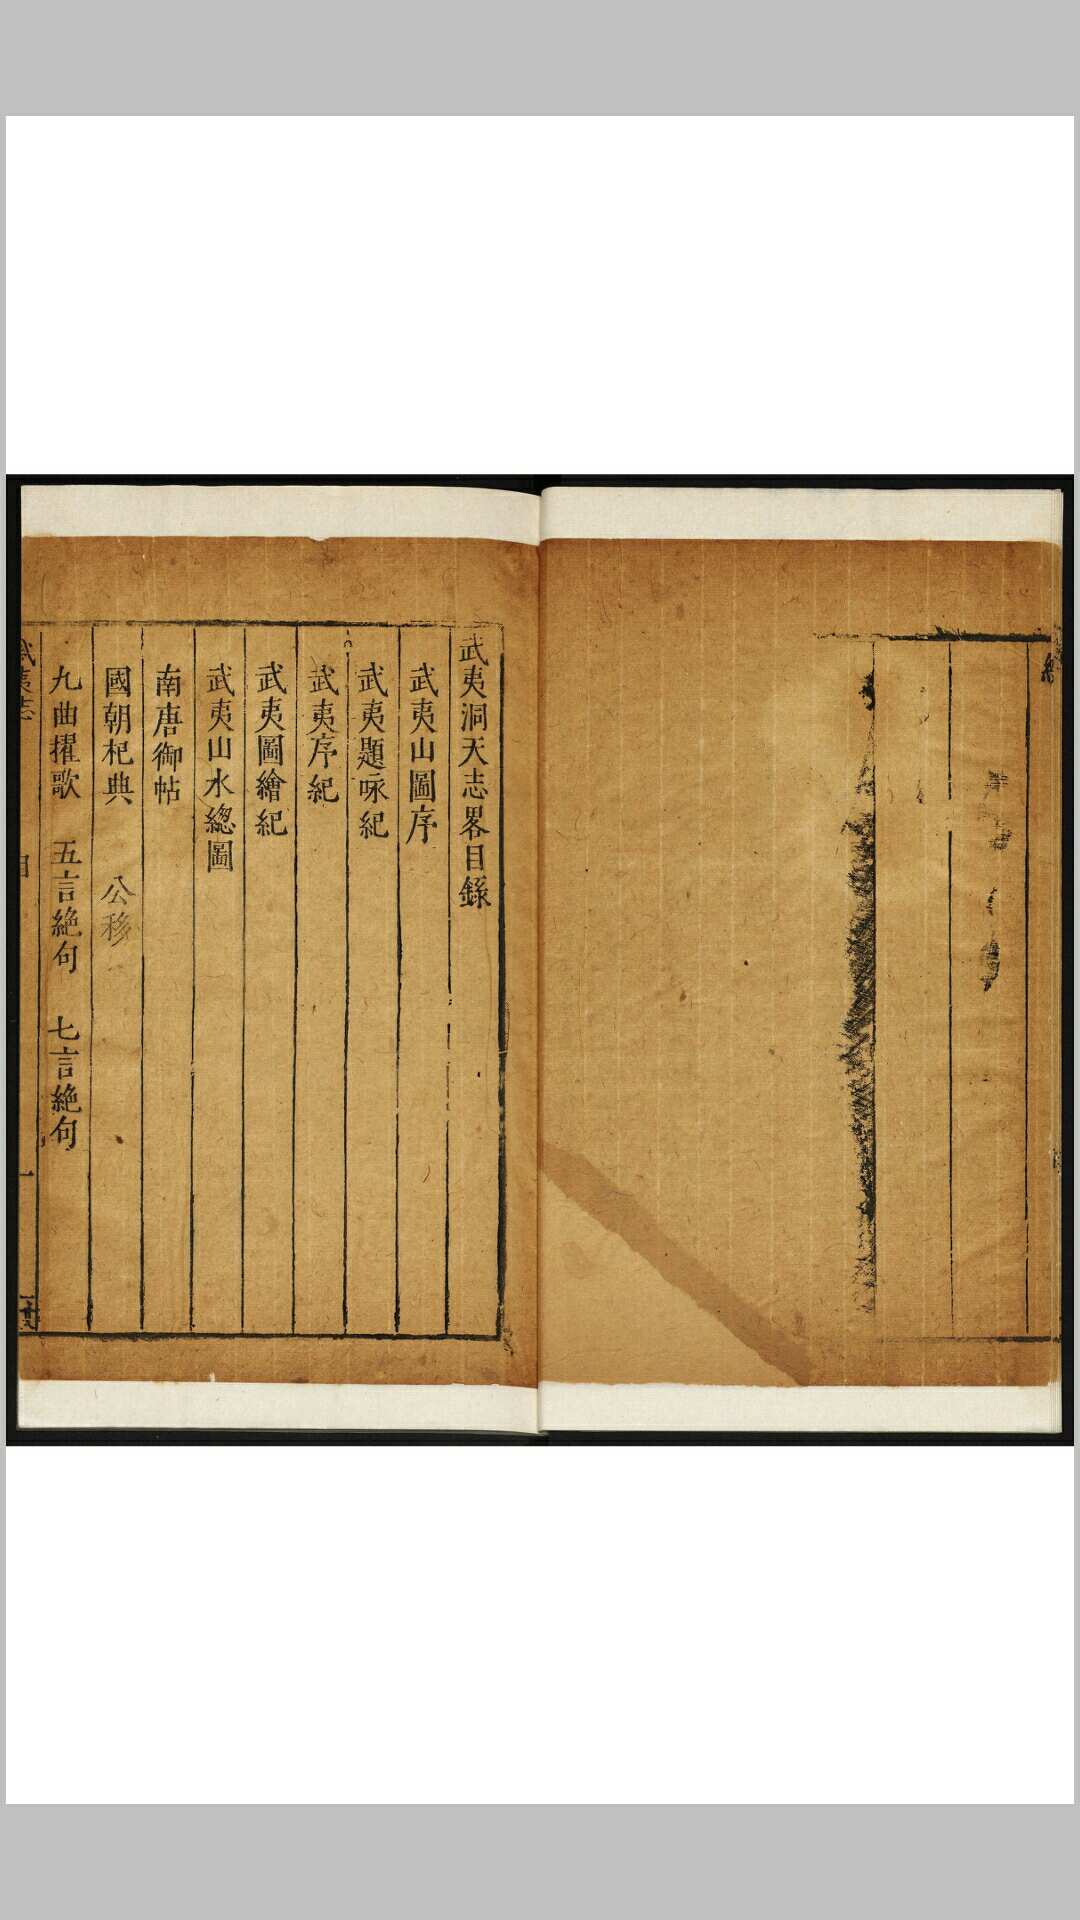 武夷洞天志畧目錄
武夷山圖序
武夷題咏紀
武夷序紀
武夷圖繪紀
武夷山水總圖
南唐御帖
國朝祀典 公移
九曲櫂歌 五言絶句 七言絶句
武夷志 目 一